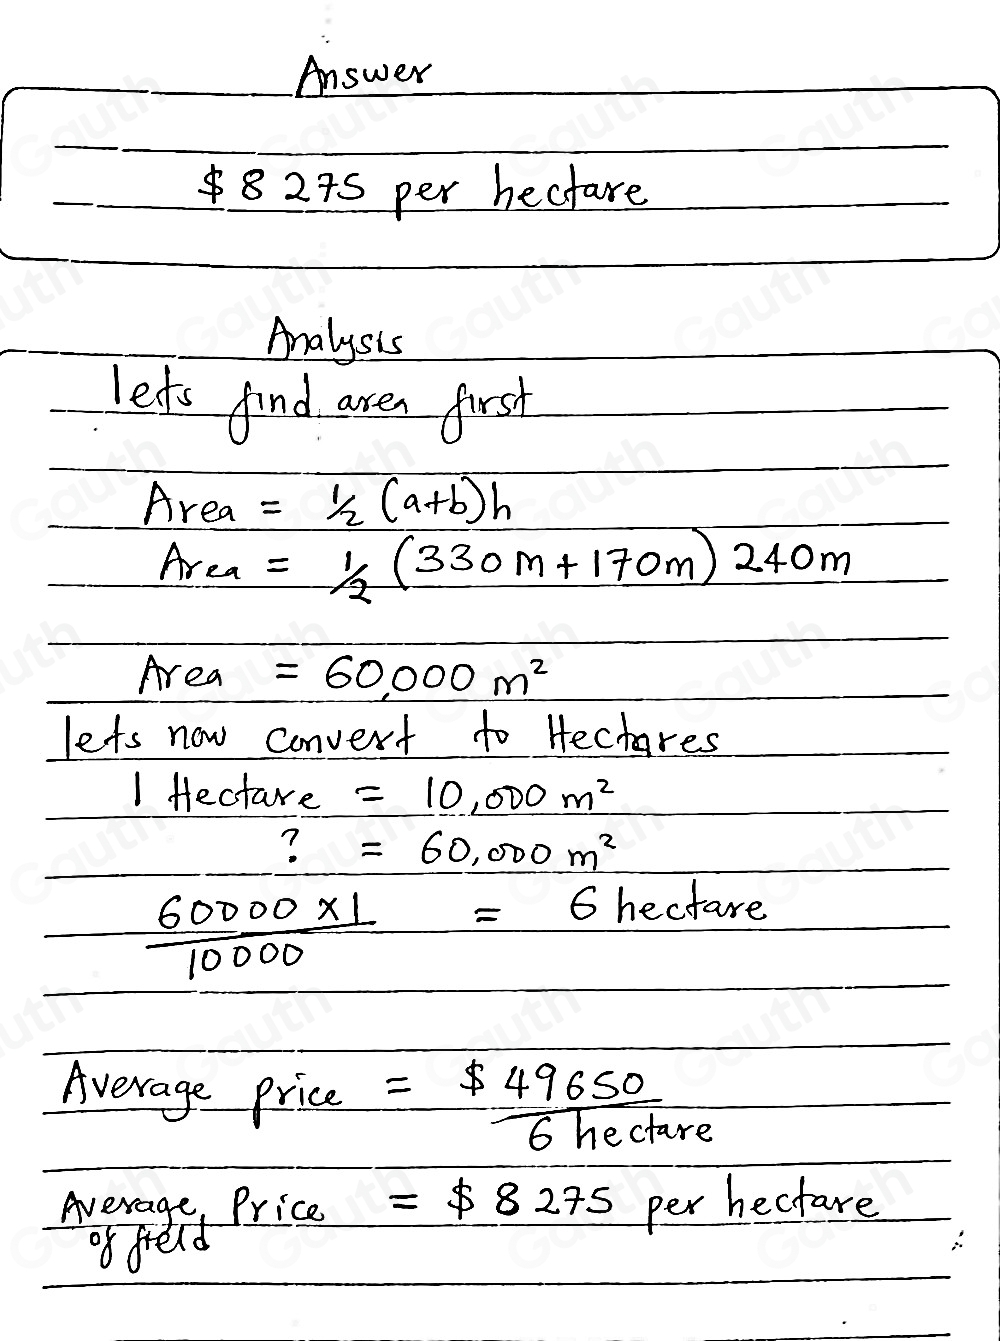 Answer
$8275 per hectare
Analysis
lets find area first
Area = 1/2 (a+b)h
Area = 1/2 (330m+170m) 240m
Area = 60,000 m²
lets now convert to Hectares
1 Hectare = 10,000 m²
? = 60,000 m²
60000 x 1 = 6 hectare
10000
Average price = $49650
6 hectare
Average Price = $8275 per hectare
of field